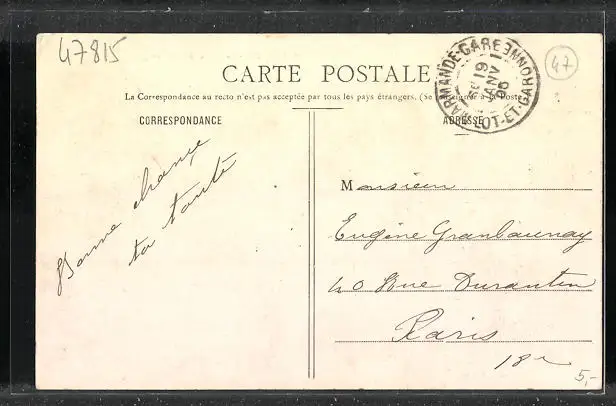 47815
CARTE POSTALE
La Correspondance au recto n'est pas acceptée par tous les pays étrangers. (Se à la Poste
MARMANDE-GARE
19
JANV
LOT-ET-GARONNE
47
CORRESPONDANCE
ADRESSE
Bonne chance
ta tante
Monsieur
Eugène
40 Rue Durantin
Paris
18e
5,-